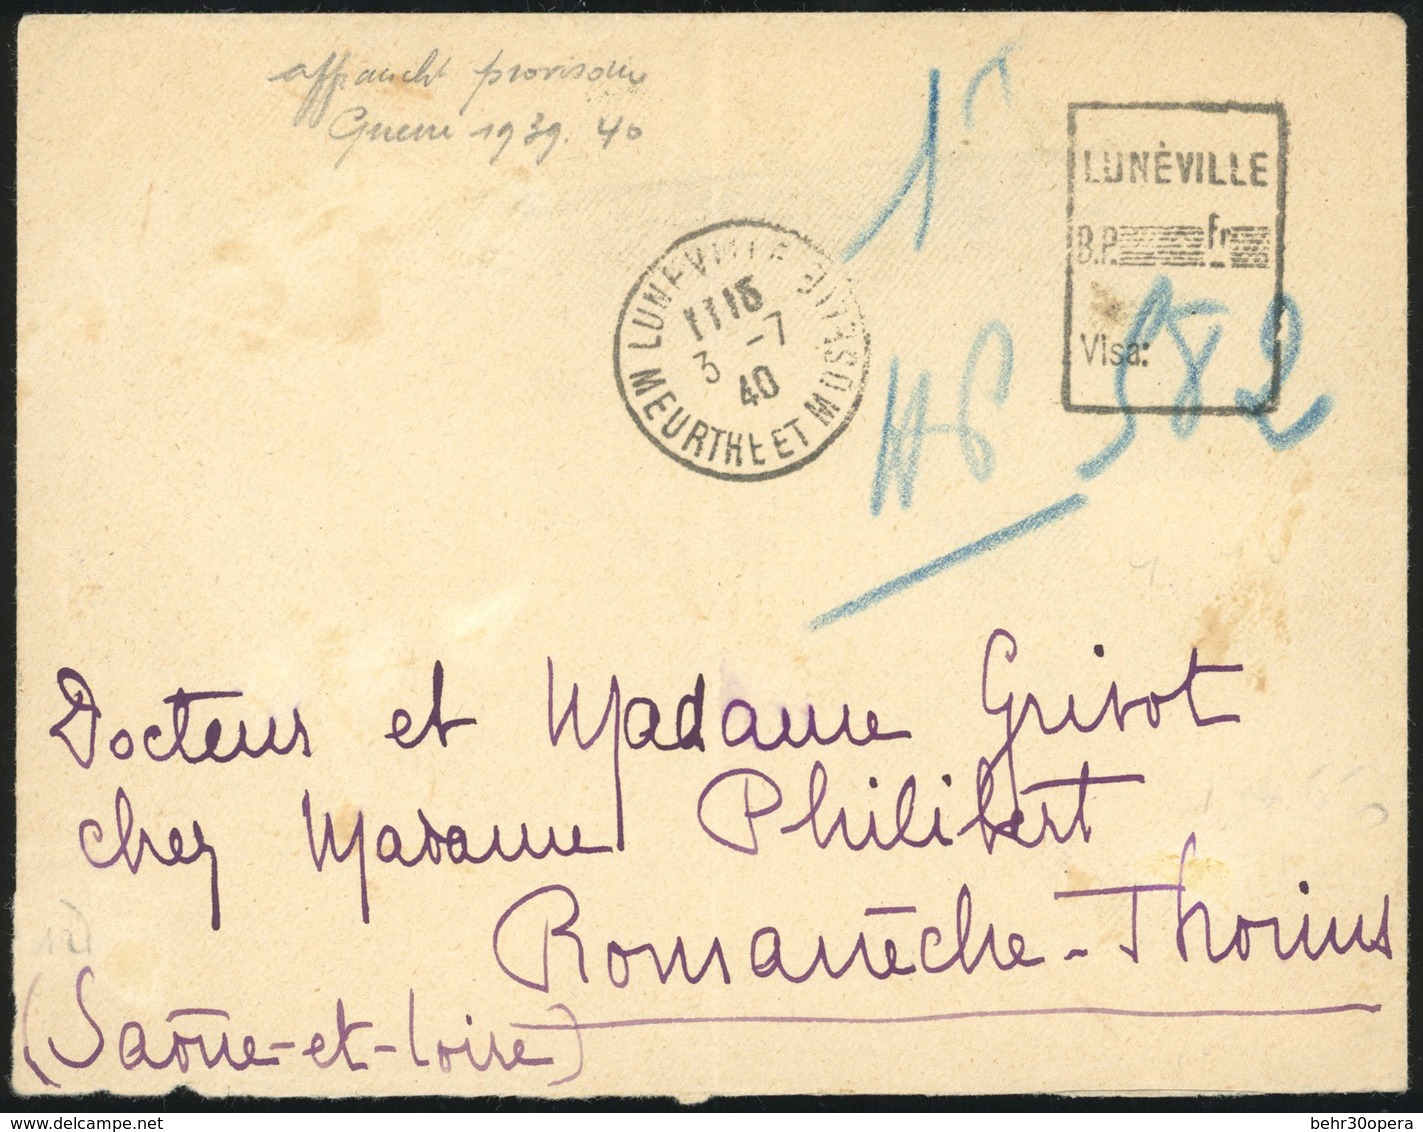 affrancht provisoire
Guerre 1939.40
1F
LUNÉVILLE
B.P. Fr
Visa:
LUNEVILLE
11 15
3 -7
40
MEURTHE ET MOSELLE
582
Docteur et Madame Grivot
chez Madame Philibert
Romanèche-Thorins
(Saône-et-Loire)
behr30opera